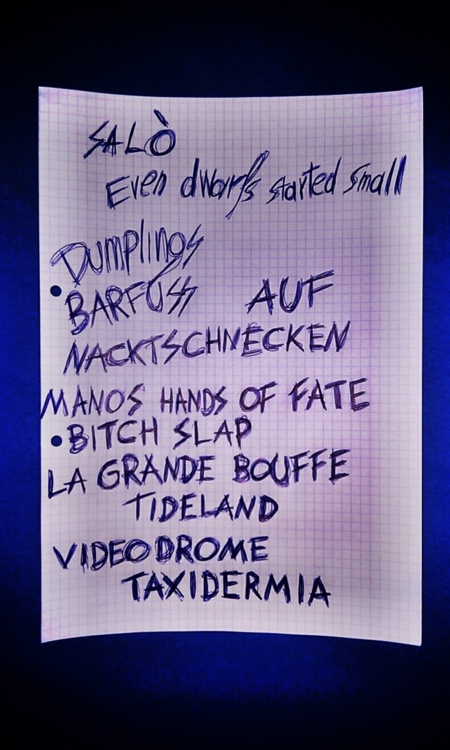 SALÒ
Even dwarfs started small
Dumplings
• BARFUSS AUF
NACKTSCHNECKEN
MANOS HANDS OF FATE
• BITCH SLAP
LA GRANDE BOUFFE
TIDELAND
VIDEODROME
TAXIDERMIA